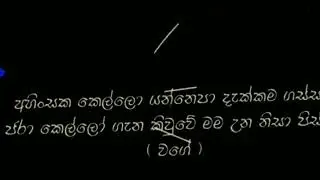 අහිංසක කෙල්ලො යන්නෙපා දැක්කම ගස්ස
ජරා කෙල්ලෝ ගැන කිව්වේ මම උන නිසා පිස්
( වගේ )